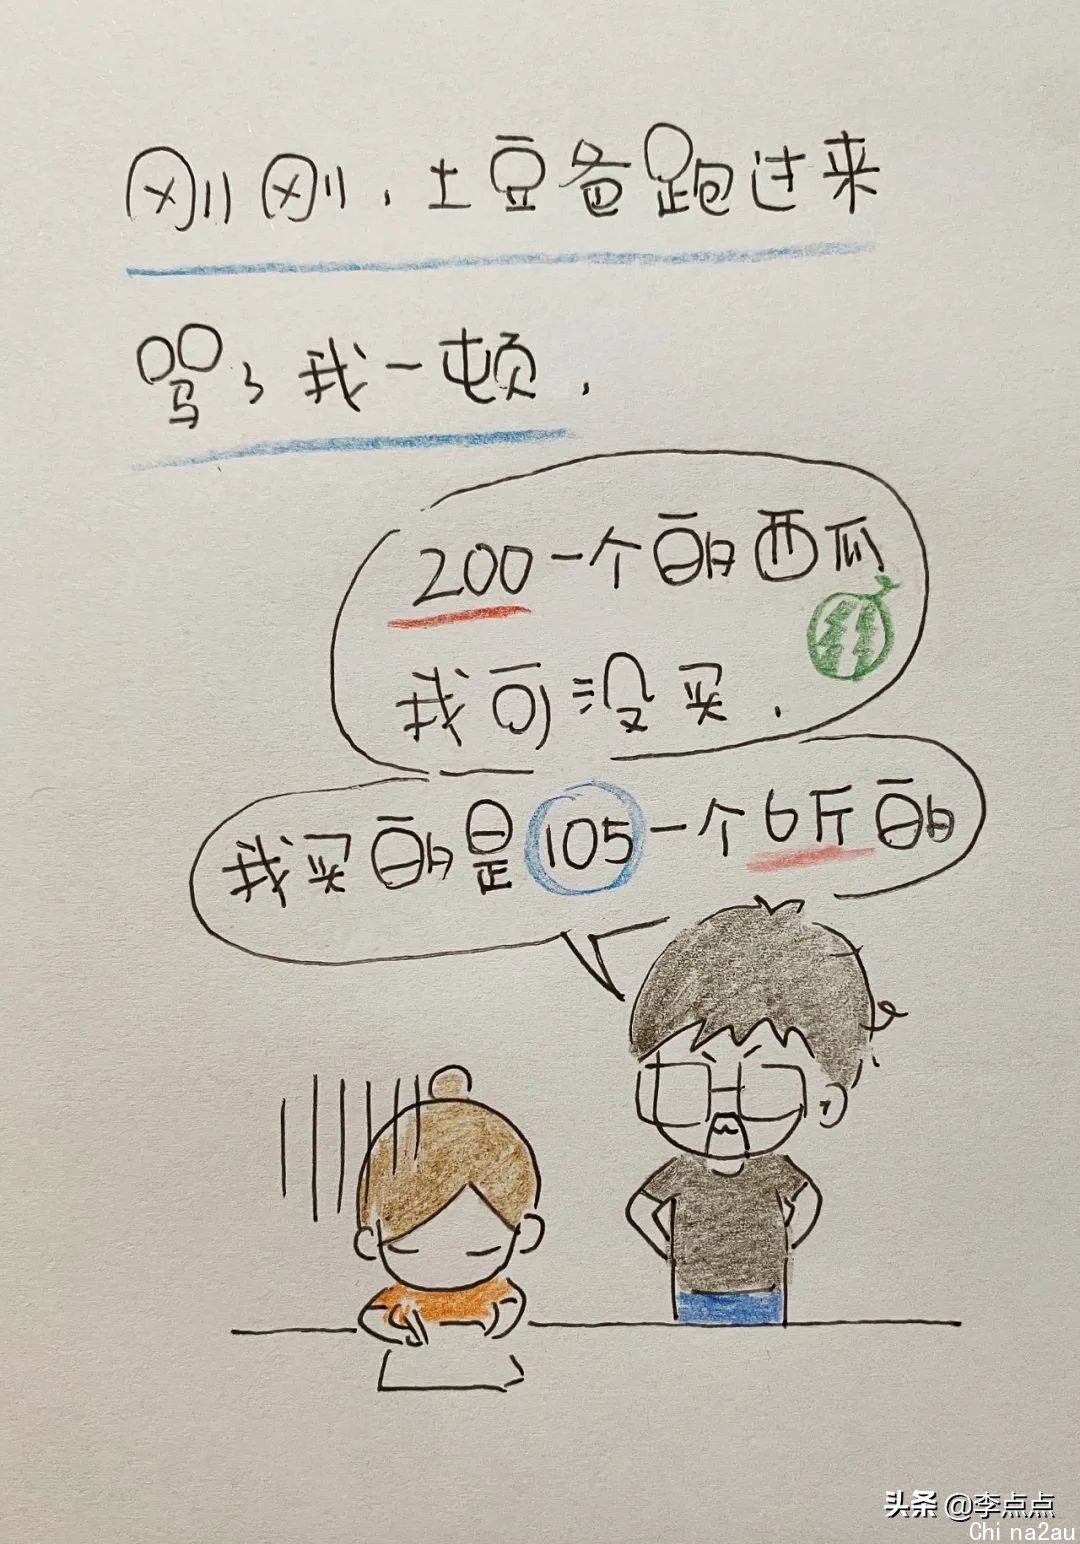 刚刚，土豆爸跑过来
骂了我一顿，
200一个的西瓜
我可没买，
我买的是105一个6斤的
头条 @李点点
Chi na2au